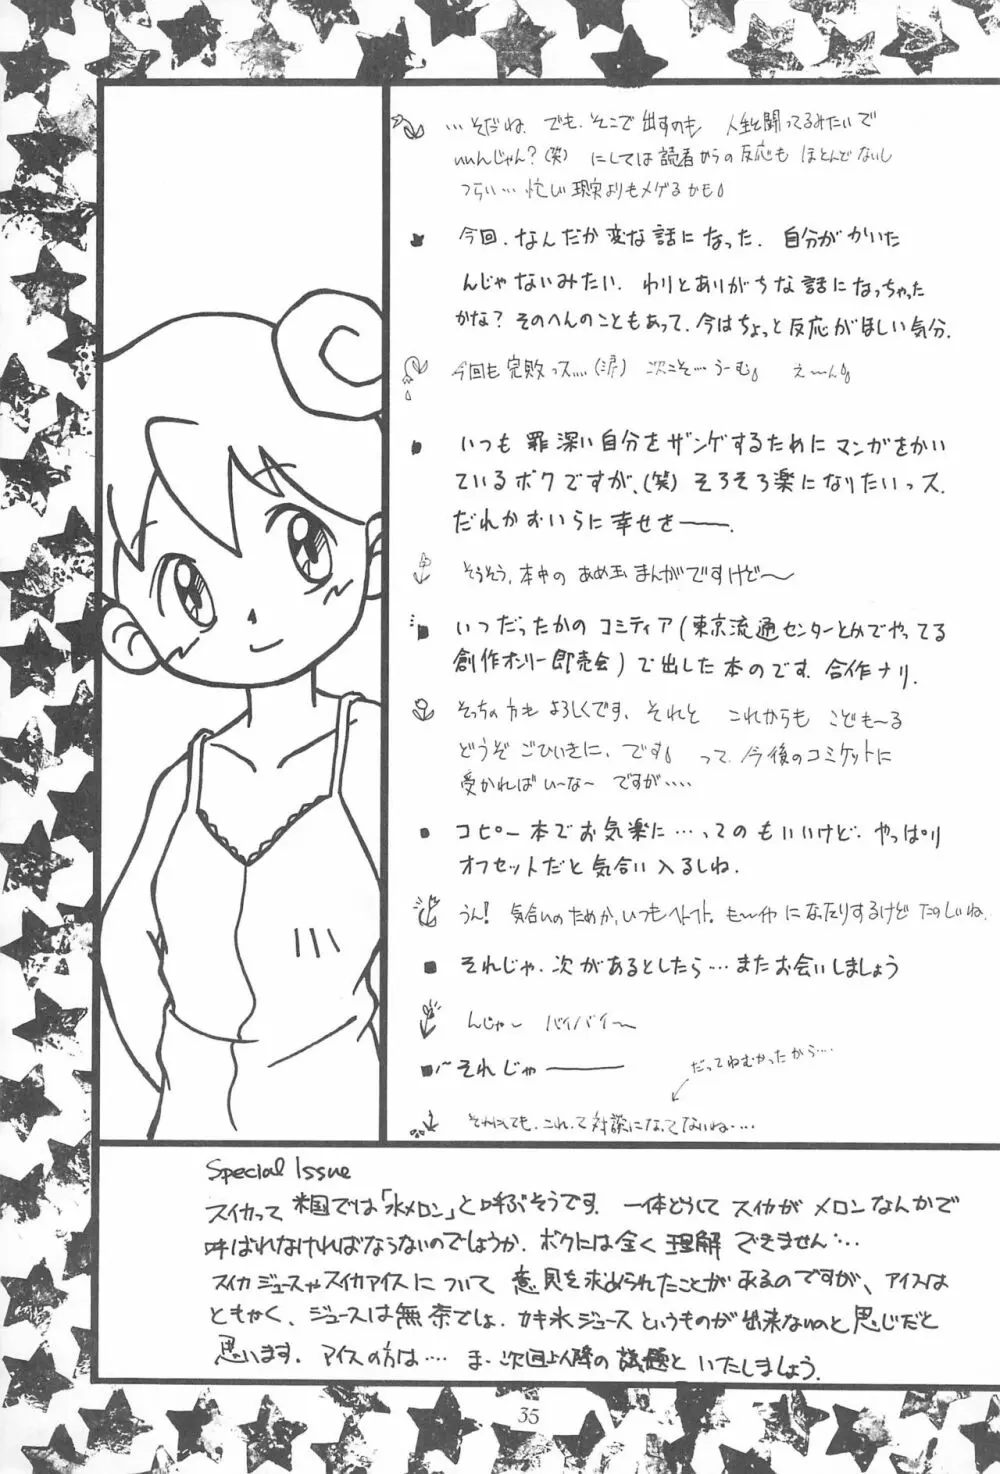 …そだね。でも、そこで出すのも 人生と闘ってるみたいで
いいんじゃん？(笑) にしては読者からの反応も ほとんどないし
つらい…忙しい現実よりもメゲるかも。
今回、なんだか変な話になった。自分がかいた
んじゃないみたい。わりとありがちな話になっちゃった
かな？そのへんのこともあって、今はちょっと反応がほしい気分。
今回も完敗っス…。(涙) 次こそ…うーむ。 え〜ん。
いつも罪深い自分をザンゲするためにマンガをかい
ているボクですが、(笑) そろそろ楽になりたいっス。
だれかおいらに幸せを――。
そうそう、本中の あめ玉まんがですけど〜
いつだったかのコミティア(東京流通センターとかでやってる
創作オンリー即売会)で出した本のです。合作ナリ。
そっちの方も よろしくです。それと これからも こども〜る
どうぞ ごひいきに、です。 って、今後のコミケットに
受かればい〜な〜 ですが‥‥
コピー本でお気楽に…ってのもいいけど、やっぱり
オフセットだと気合い入るしね。
うん！ 気合いのためか、いつもヘトヘト。も〜イヤ になったりするけど たのしいね。
それじゃ、次があるとしたら…またお会いしましょう
んじゃー バイバイ〜
〜それじゃ――
だってねむかったから…
それにしても、これって対談になってないね‥‥
Special Issue
スイカって米国では「水メロン」と呼ぶそうです。一体どうして スイカが メロンなんかで
呼ばれなければならないのでしょうか。ボクには全く理解できません…
スイカジュースやスイカアイスについて 意見を求められたことがあるのですが、アイスは
ともかく、ジュースは無茶でしょ。カキ氷ジュースというものが出来ないのと同じだと
思います。アイスの方は…ま、次回以降の議題と いたしましょう。
35